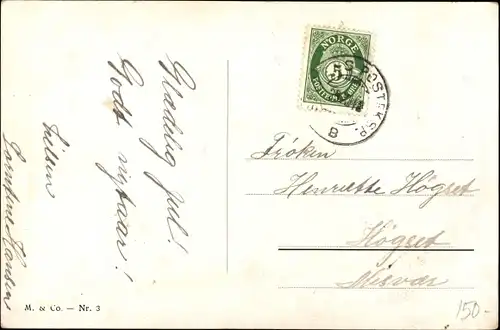 Glædelig jul!
Godt nytaar!
Hilsen
Hansen
NORGE
5
POSTFRIM.
POSTEKSP.
B
Frøken
Henriette Høgset
Høgset
Misvær
M. & Co. – Nr. 3
150-